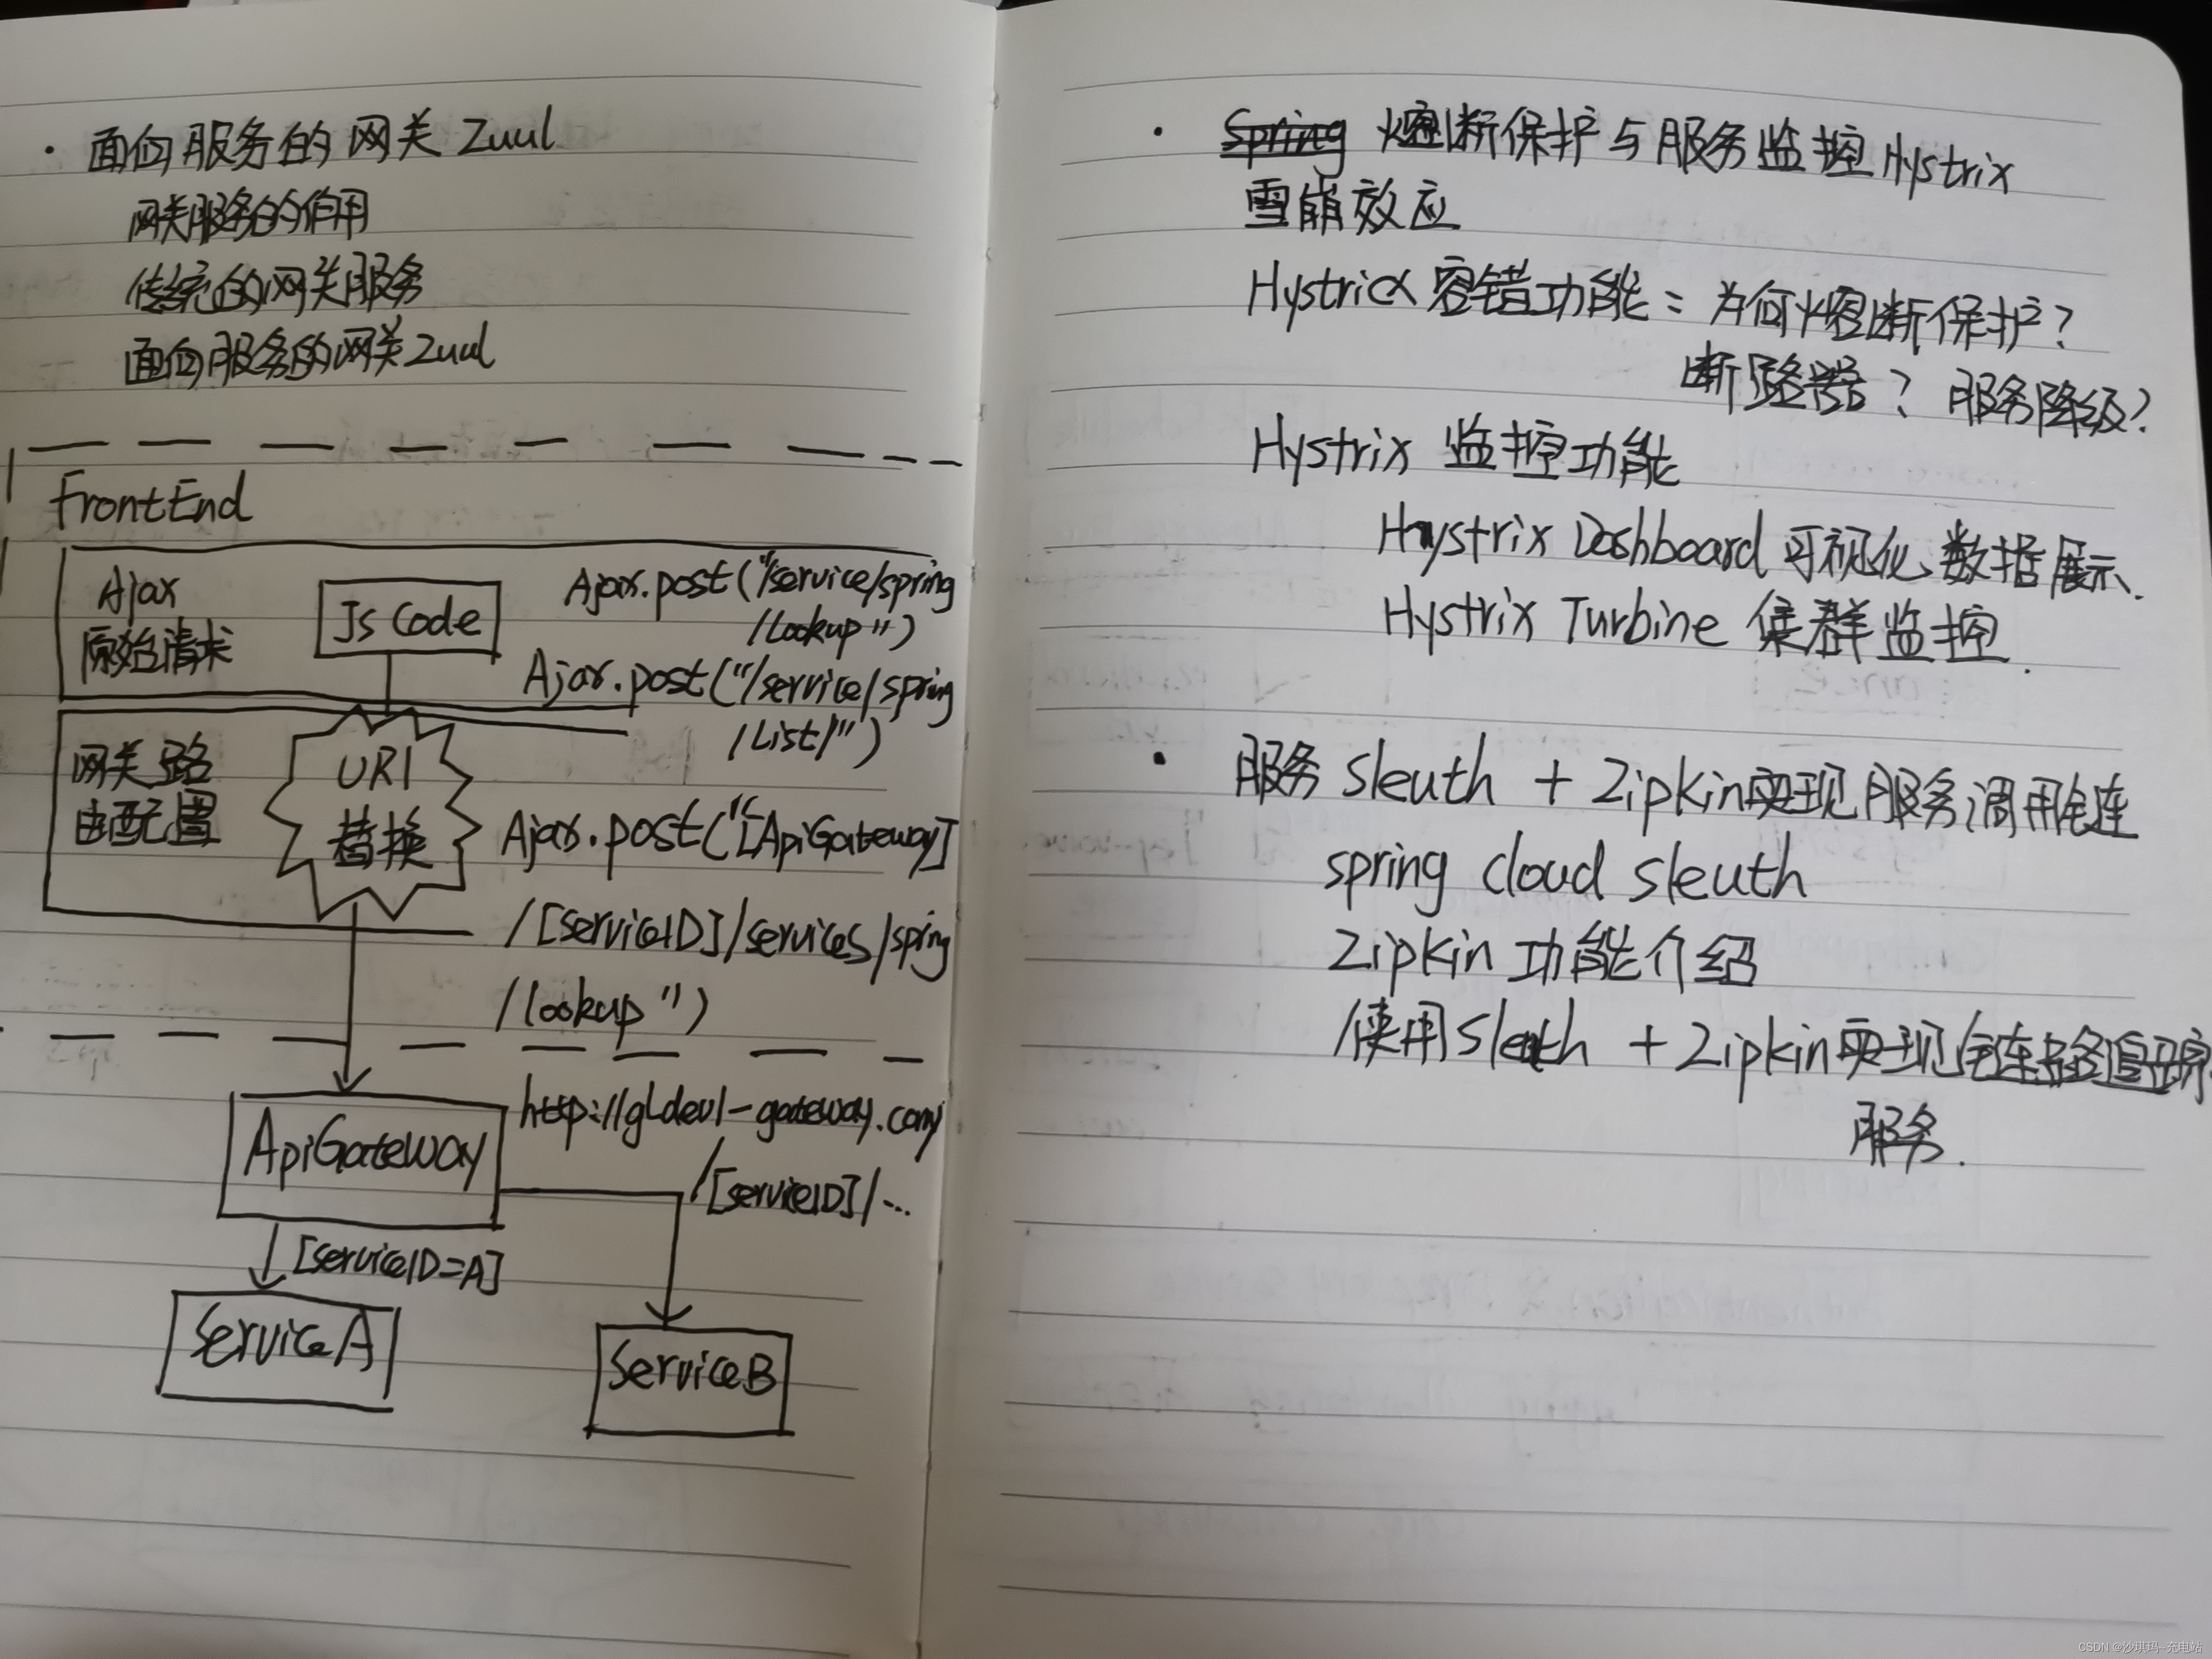 · 面向服务的网关 Zuul
网关服务的作用
传统的网关服务
面向服务的网关Zuul
FrontEnd
Ajax
原始请求
Js Code
Ajax.post("/service/spring
/Lookup")
Ajax.post("/service/spring
/List/")
网关路
由配置
URI
替换
Ajax.post("[ApiGateway]
/[serviceID]/services/spring
/lookup")
ApiGateway
http://gldev1-gateway.com/
/[serviceID]/...
[serviceID=A]
ServiceA
ServiceB
· Spring 熔断保护与服务监控Hystrix
雪崩效应
Hystrix 容错功能: 为何熔断保护?
断路器? 服务降级?
Hystrix 监控功能
Hystrix Dashboard 可视化数据展示.
Hystrix Turbine 集群监控.
· 服务 Sleuth + Zipkin实现服务调用链
spring cloud sleuth
Zipkin 功能介绍
使用Sleuth + Zipkin实现链路追踪
服务.
CSDN @沙琪玛-充电站